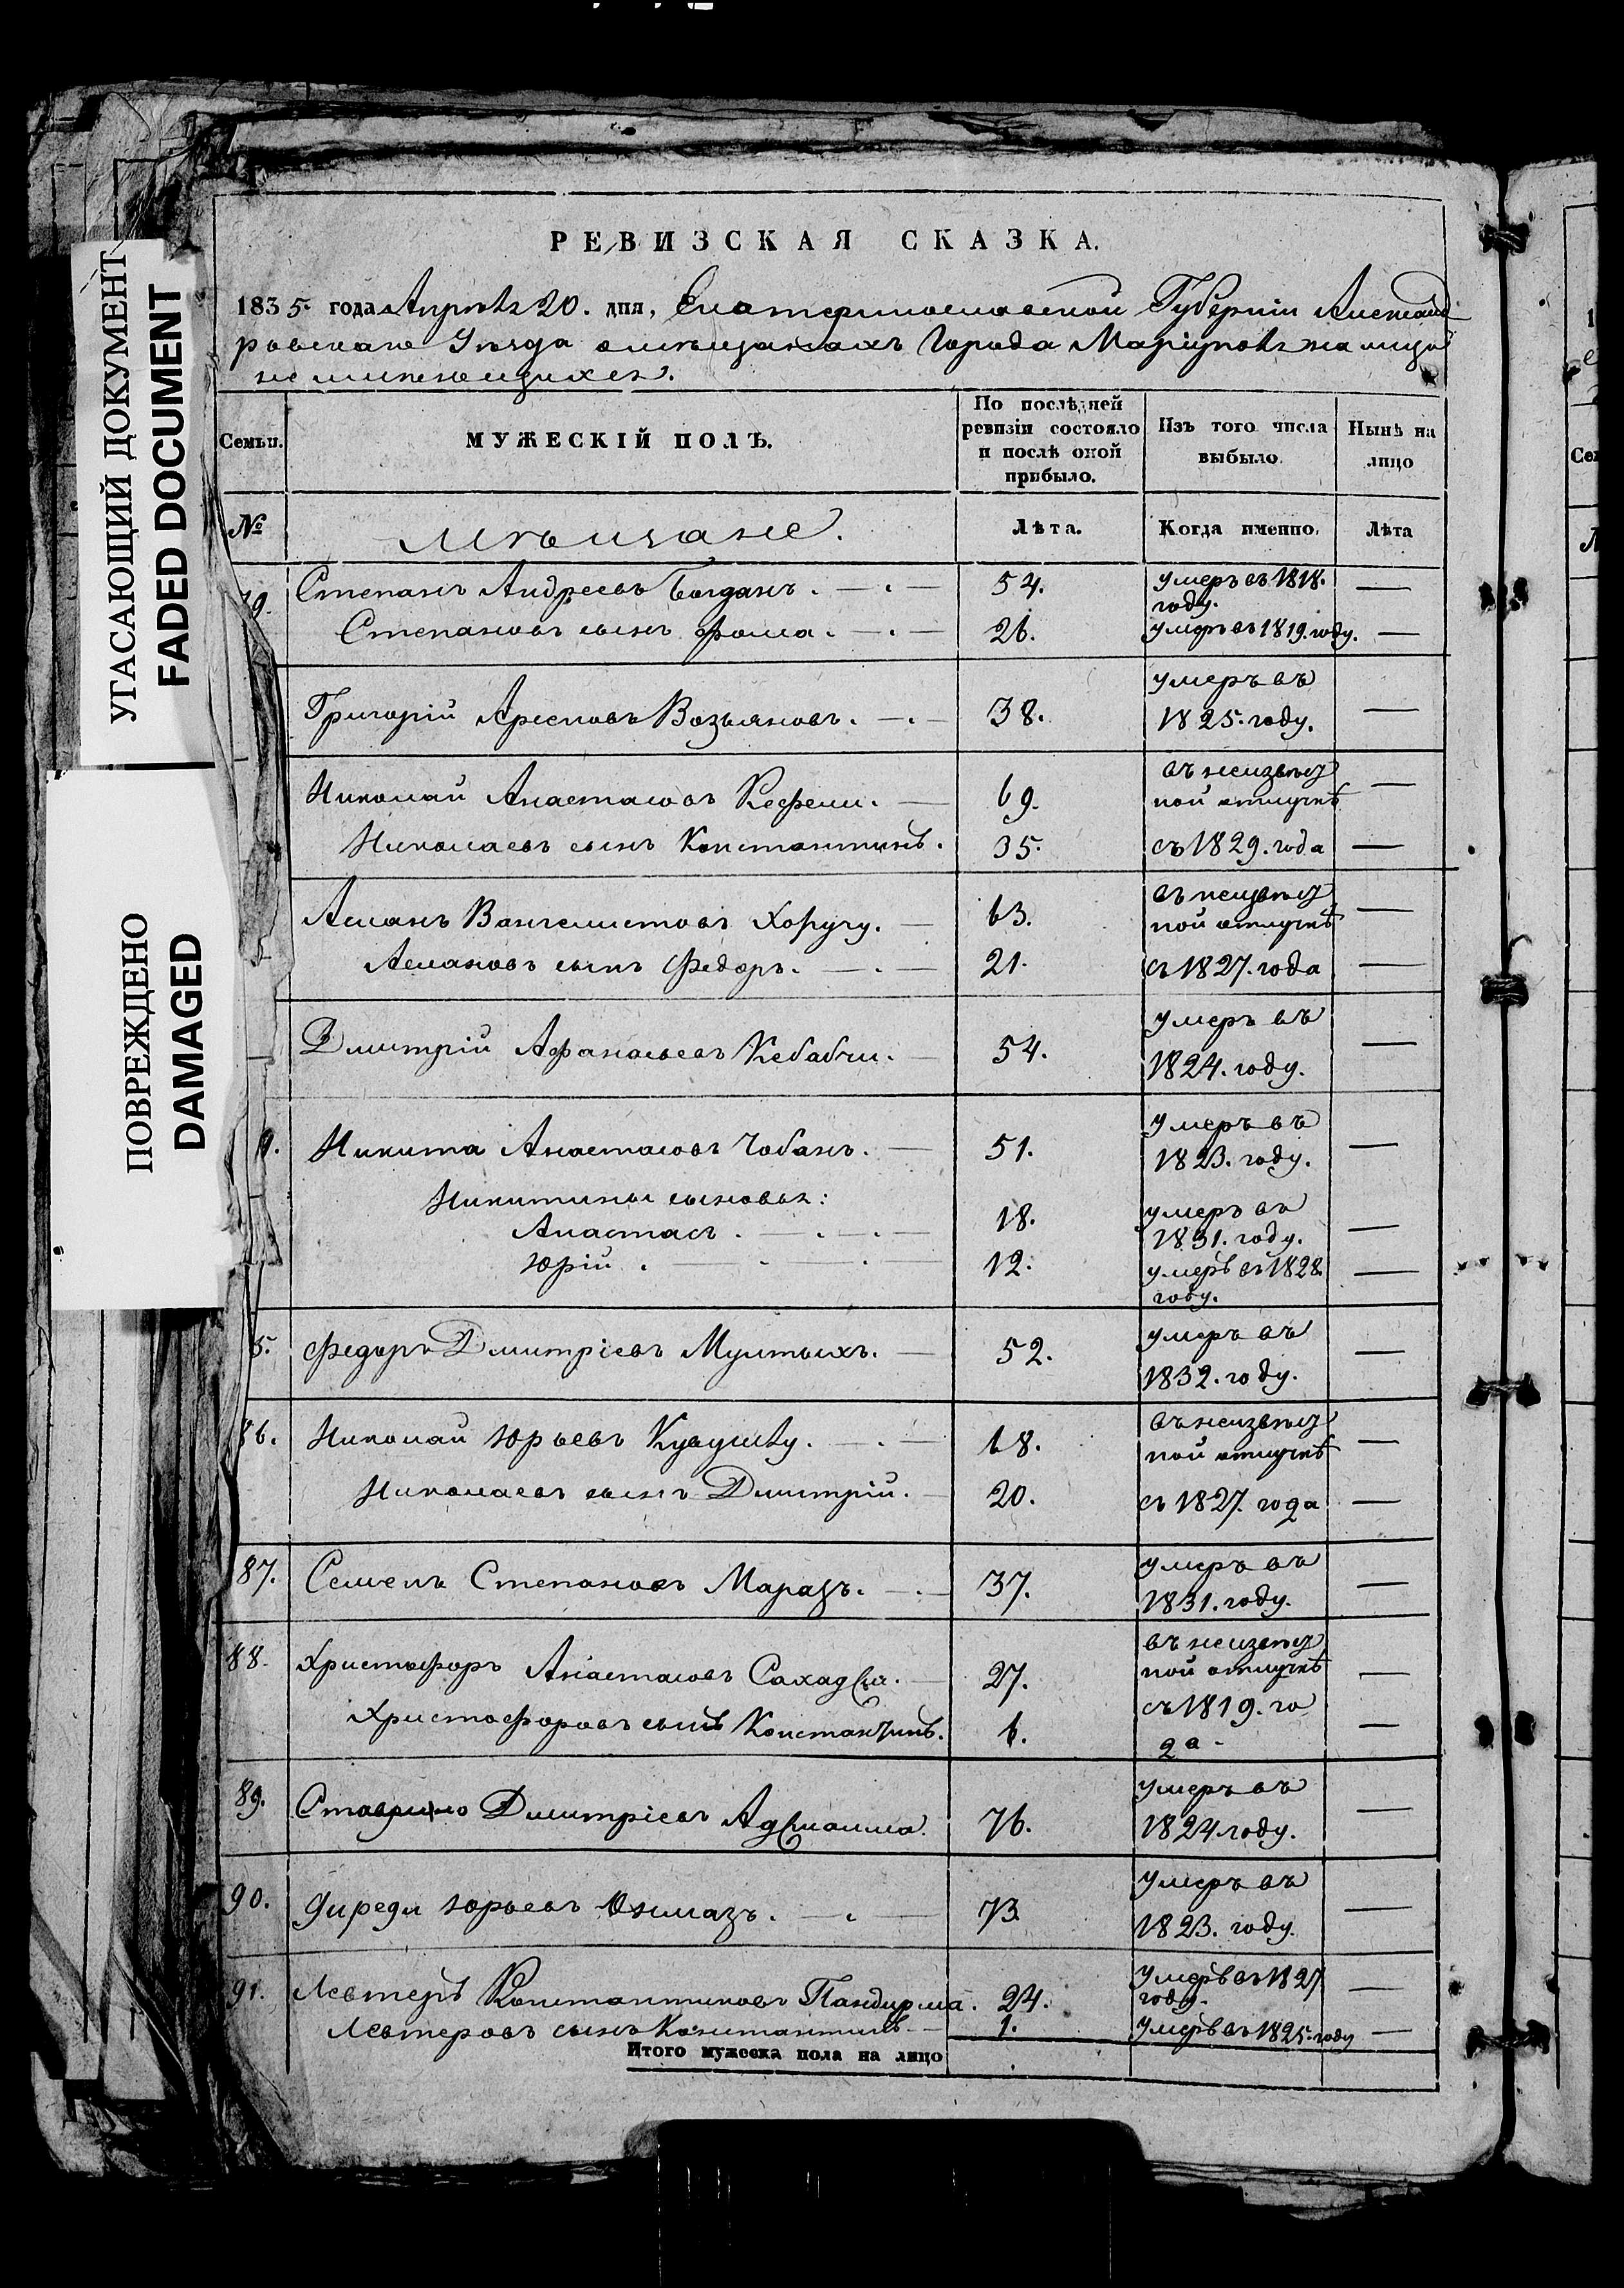 УГАСАЮЩИЙ ДОКУМЕНТ
FADED DOCUMENT
ПОВРЕЖДЕНО
DAMAGED
РЕВИЗСКАЯ СКАЗКА.
1835. года Апрѣля 20. дня, Екатеринославской Губерніи Александ
ровскаго Уѣзда о мѣщанахъ Города Маріуполя на лицо
не имѣющихся.
Семьи.
МУЖЕСКІЙ ПОЛЪ.
По послѣдней ревизіи состояло и послѣ оной прибыло.
Изъ того числа выбыло.
Нынѣ на лицо
№
Мѣщане.
Лѣта.
Когда именно.
Лѣта
79. Степанъ Андреевъ Богданъ. 54. умеръ въ 1818. году. —
Степановъ сынъ Фома. 26. умеръ въ 1819. году. —
Григорій Возьяновъ. 38. умеръ въ 1825. году. —
Николай Анастасовъ Кефели. 69. въ неизвѣст
ной отлучкѣ —
Николаевъ сынъ Константинъ. 35. съ 1829. года —
Асланъ Вангелистовъ Хоручу. 63. въ неизвѣст
ной отлучкѣ —
Аслановъ сынъ Федоръ. 21. съ 1827. года —
Дмитрій Афанасьевъ Кебабчи. 54. умеръ въ 1824. году. —
Никита Анастасовъ Чобанъ. 51. умеръ въ 1823. году. —
Никитины сыновья:
Анастасъ. 18. умеръ въ 1831. году. —
Юрій. 12. умеръ въ 1828. году. —
5. Федоръ Дмитріевъ Мултыхъ. 52. умеръ въ 1832. году. —
86. Николай Юрьевъ 68. въ неизвѣст
ной отлучкѣ —
Николаевъ сынъ Дмитрій. 20. съ 1827. года —
87. Семенъ Степановъ Маразъ. 37. умеръ въ 1831. году. —
88. Христофоръ Анастасовъ 27. въ неизвѣст
ной отлучкѣ —
Христофоровъ сынъ Константинъ. 6. съ 1819. го
да. —
89. Ставрино Дмитріевъ 76. умеръ въ 1824 году. —
90. Юрьевъ 73. умеръ въ 1823. году. —
91. Левтеръ Константиновъ Пандирма. 24. умеръ въ 1827 году. —
Левтеровъ сынъ Константинъ 1. умеръ въ 1825. году —
Итого мужеска пола на лицо